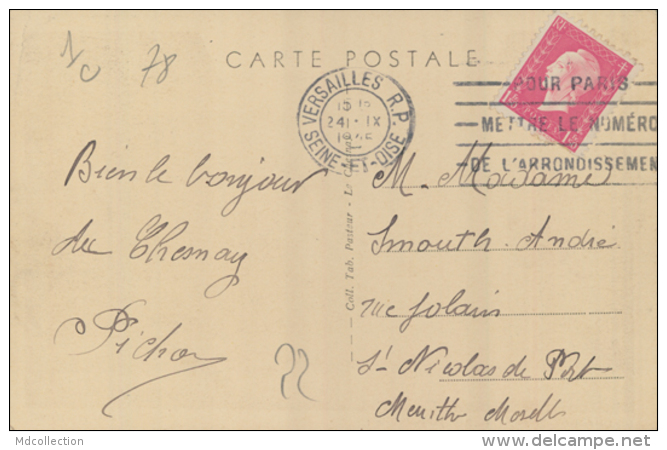 1/c 78
CARTE POSTALE
VERSAILLES R.P.
24 - IX
SEINE-ET-OISE
POUR PARIS
METTRE LE NUMÉRO
DE L'ARRONDISSEMEN
Bien le bonjour
du Chesnay
Pichon
22
Coll. Tab. Pasteur - Le
M. Madame
Smouth. André
rue Jolain
St Nicolas de Port
Meurthe Moselle
Mdcollection
www.delcampe.net